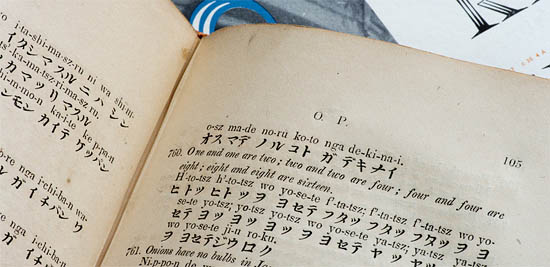 i-ta-shi-ma-sz-ru ni wa shi-m-
イタシマスル ニ ハ シン
ts'-ka-ma-tsz-ri-ma-sz-ru.
カマツリマスル
shi-m-mo-n ka-i-te ke p-pa-n
ンモン カイテ ケッパン
re nga i-chi-ba-n wa-
ル ガ イチバン ワ
re nga i-chi-ba-n
ガ イチハ
O. P.
105
o-sz ma-de no-ru ko-to nga de-ki-na-i.
オスマデ ノル コト ガ デキナイ
760. One and one are two; two and two are four; four and four are
eight; eight and eight are sixteen.
H'-to-tsz h'-to-tsz wo yo-se-te f'-ta-tsz; f'-ta-tsz f'-ta-tsz wo yo-
ヒトツ ヒトツ ヲ ヨセテ フタツ フタツ フタツ ヲ ヨ
se-te yo-tsz; yo-tsz yo-tsz wo yo-se-te ya-tsz; ya-tsz ya-tsz
セテ ヨツ ヨツ ヨツ ヲ ヨセテ ヤツ ヤツ
wo yo-se-te ji-u ro-ku.
ヲ ヨセテ ジウロク
761. Onions have no bulbs in
Ni-p-po-n de